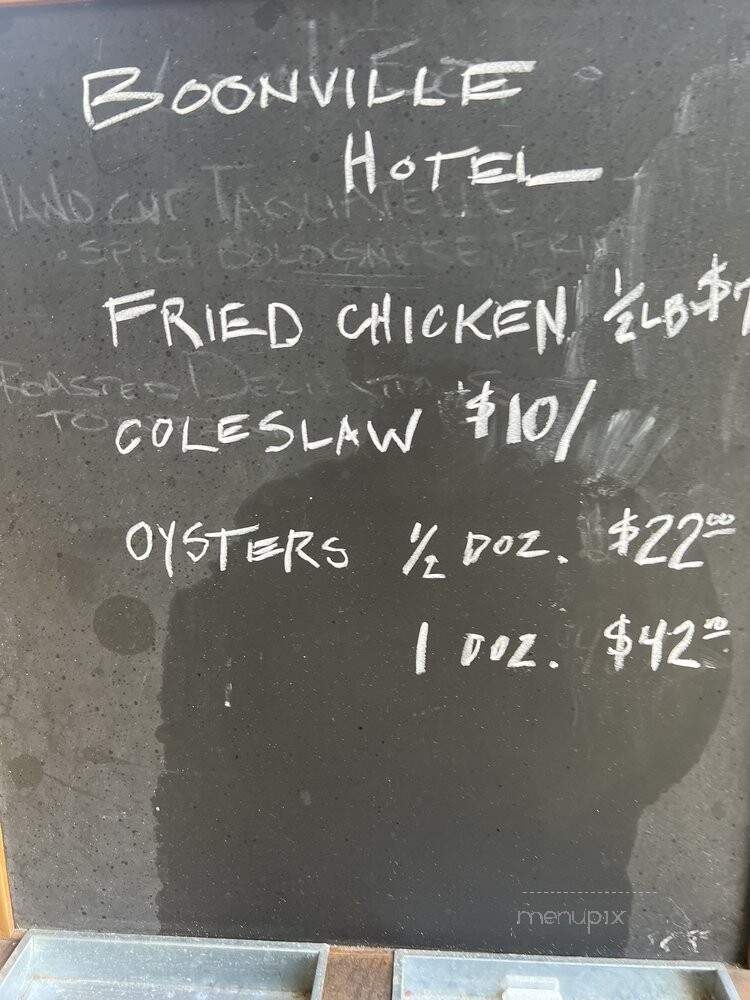 BOONVILLE
HOTEL
HAND CUT TAGLIATELLE
• SPICY BOLOGNESE
FRIED CHICKEN ½ LB $7
ROASTED
COLESLAW $10/
OYSTERS ½ DOZ. $22.00
1 DOZ. $42.00
menupix